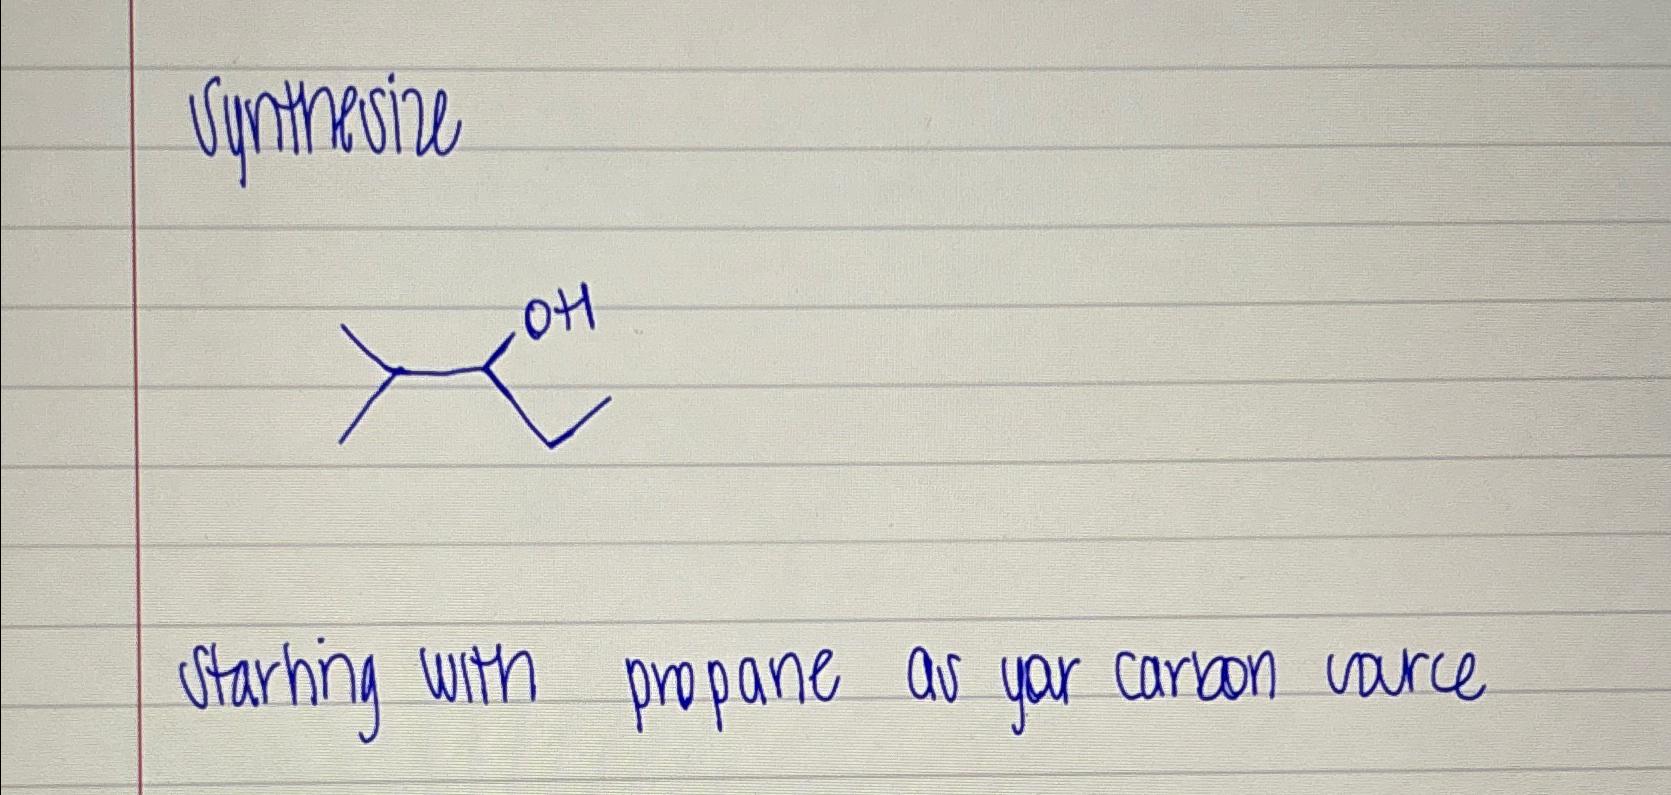 Synthesize
OH
starting with propane as your carbon source